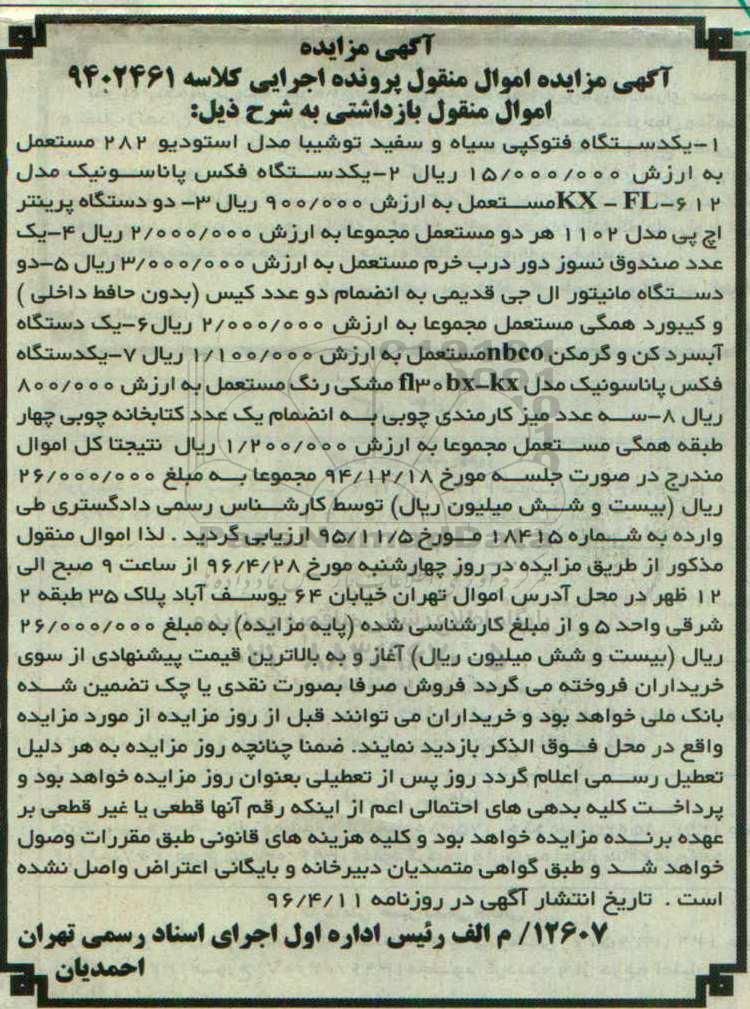 آگهی مزایده
آگهی مزایده اموال منقول پرونده اجرایی کلاسه ۹۴۰۲۴۶۱
اموال منقول بازداشتی به شرح ذیل:
۱-یکدستگاه فتوکپی سیاه و سفید توشیبا مدل استودیو ۲۸۲ مستعمل
به ارزش ۱۵/۰۰۰/۰۰۰ ریال ۲-یکدستگاه فکس پاناسونیک مدل
KX - FL-۶۱۲ مستعمل به ارزش ۹۰۰/۰۰۰ ریال ۳- دو دستگاه پرینتر
اچ پی مدل ۱۱۰۲ هر دو مستعمل مجموعا به ارزش ۲/۰۰۰/۰۰۰ ریال ۴-یک
عدد صندوق نسوز دور درب خرم مستعمل به ارزش ۳/۰۰۰/۰۰۰ ریال ۵-دو
دستگاه مانیتور ال جی قدیمی به انضمام دو عدد کیس (بدون حافظ داخلی )
و کیبورد همگی مستعمل مجموعا به ارزش ۲/۰۰۰/۰۰۰ ریال۶-یک دستگاه
آبسرد کن و گرمکن nbcoمستعمل به ارزش ۱/۱۰۰/۰۰۰ ریال ۷-یکدستگاه
فکس پاناسونیک مدل fl۳۰bx-kx مشکی رنگ مستعمل به ارزش ۸۰۰/۰۰۰
ریال ۸-سه عدد میز کارمندی چوبی به انضمام یک عدد کتابخانه چوبی چهار
طبقه همگی مستعمل مجموعا به ارزش ۱/۲۰۰/۰۰۰ ریال نتیجتا کل اموال
مندرج در صورت جلسه مورخ ۹۴/۱۲/۱۸ مجموعا به مبلغ ۲۶/۰۰۰/۰۰۰
ریال (بیست و شش میلیون ریال) توسط کارشناس رسمی دادگستری طی
وارده به شماره ۱۸۴۱۵ مورخ ۹۵/۱۱/۵ ارزیابی گردید . لذا اموال منقول
مذکور از طریق مزایده در روز چهارشنبه مورخ ۹۶/۴/۲۸ از ساعت ۹ صبح الی
۱۲ ظهر در محل آدرس اموال تهران خیابان ۶۴ یوسف آباد پلاک ۳۵ طبقه ۲
شرقی واحد ۵ و از مبلغ کارشناسی شده (پایه مزایده) به مبلغ ۲۶/۰۰۰/۰۰۰
ریال (بیست و شش میلیون ریال) آغاز و به بالاترین قیمت پیشنهادی از سوی
خریداران فروخته می گردد فروش صرفا بصورت نقدی یا چک تضمین شده
بانک ملی خواهد بود و خریداران می توانند قبل از روز مزایده از مورد مزایده
واقع در محل فوق الذکر بازدید نمایند. ضمنا چنانچه روز مزایده به هر دلیل
تعطیل رسمی اعلام گردد روز پس از تعطیلی بعنوان روز مزایده خواهد بود و
پرداخت کلیه بدهی های احتمالی اعم از اینکه رقم آنها قطعی یا غیر قطعی بر
عهده برنده مزایده خواهد بود و کلیه هزینه های قانونی طبق مقررات وصول
خواهد شد و طبق گواهی متصدیان دبیرخانه و بایگانی اعتراض واصل نشده
است . تاریخ انتشار آگهی در روزنامه ۹۶/۴/۱۱
۱۲۶۰۷/ م الف رئیس اداره اول اجرای اسناد رسمی تهران
احمدیان